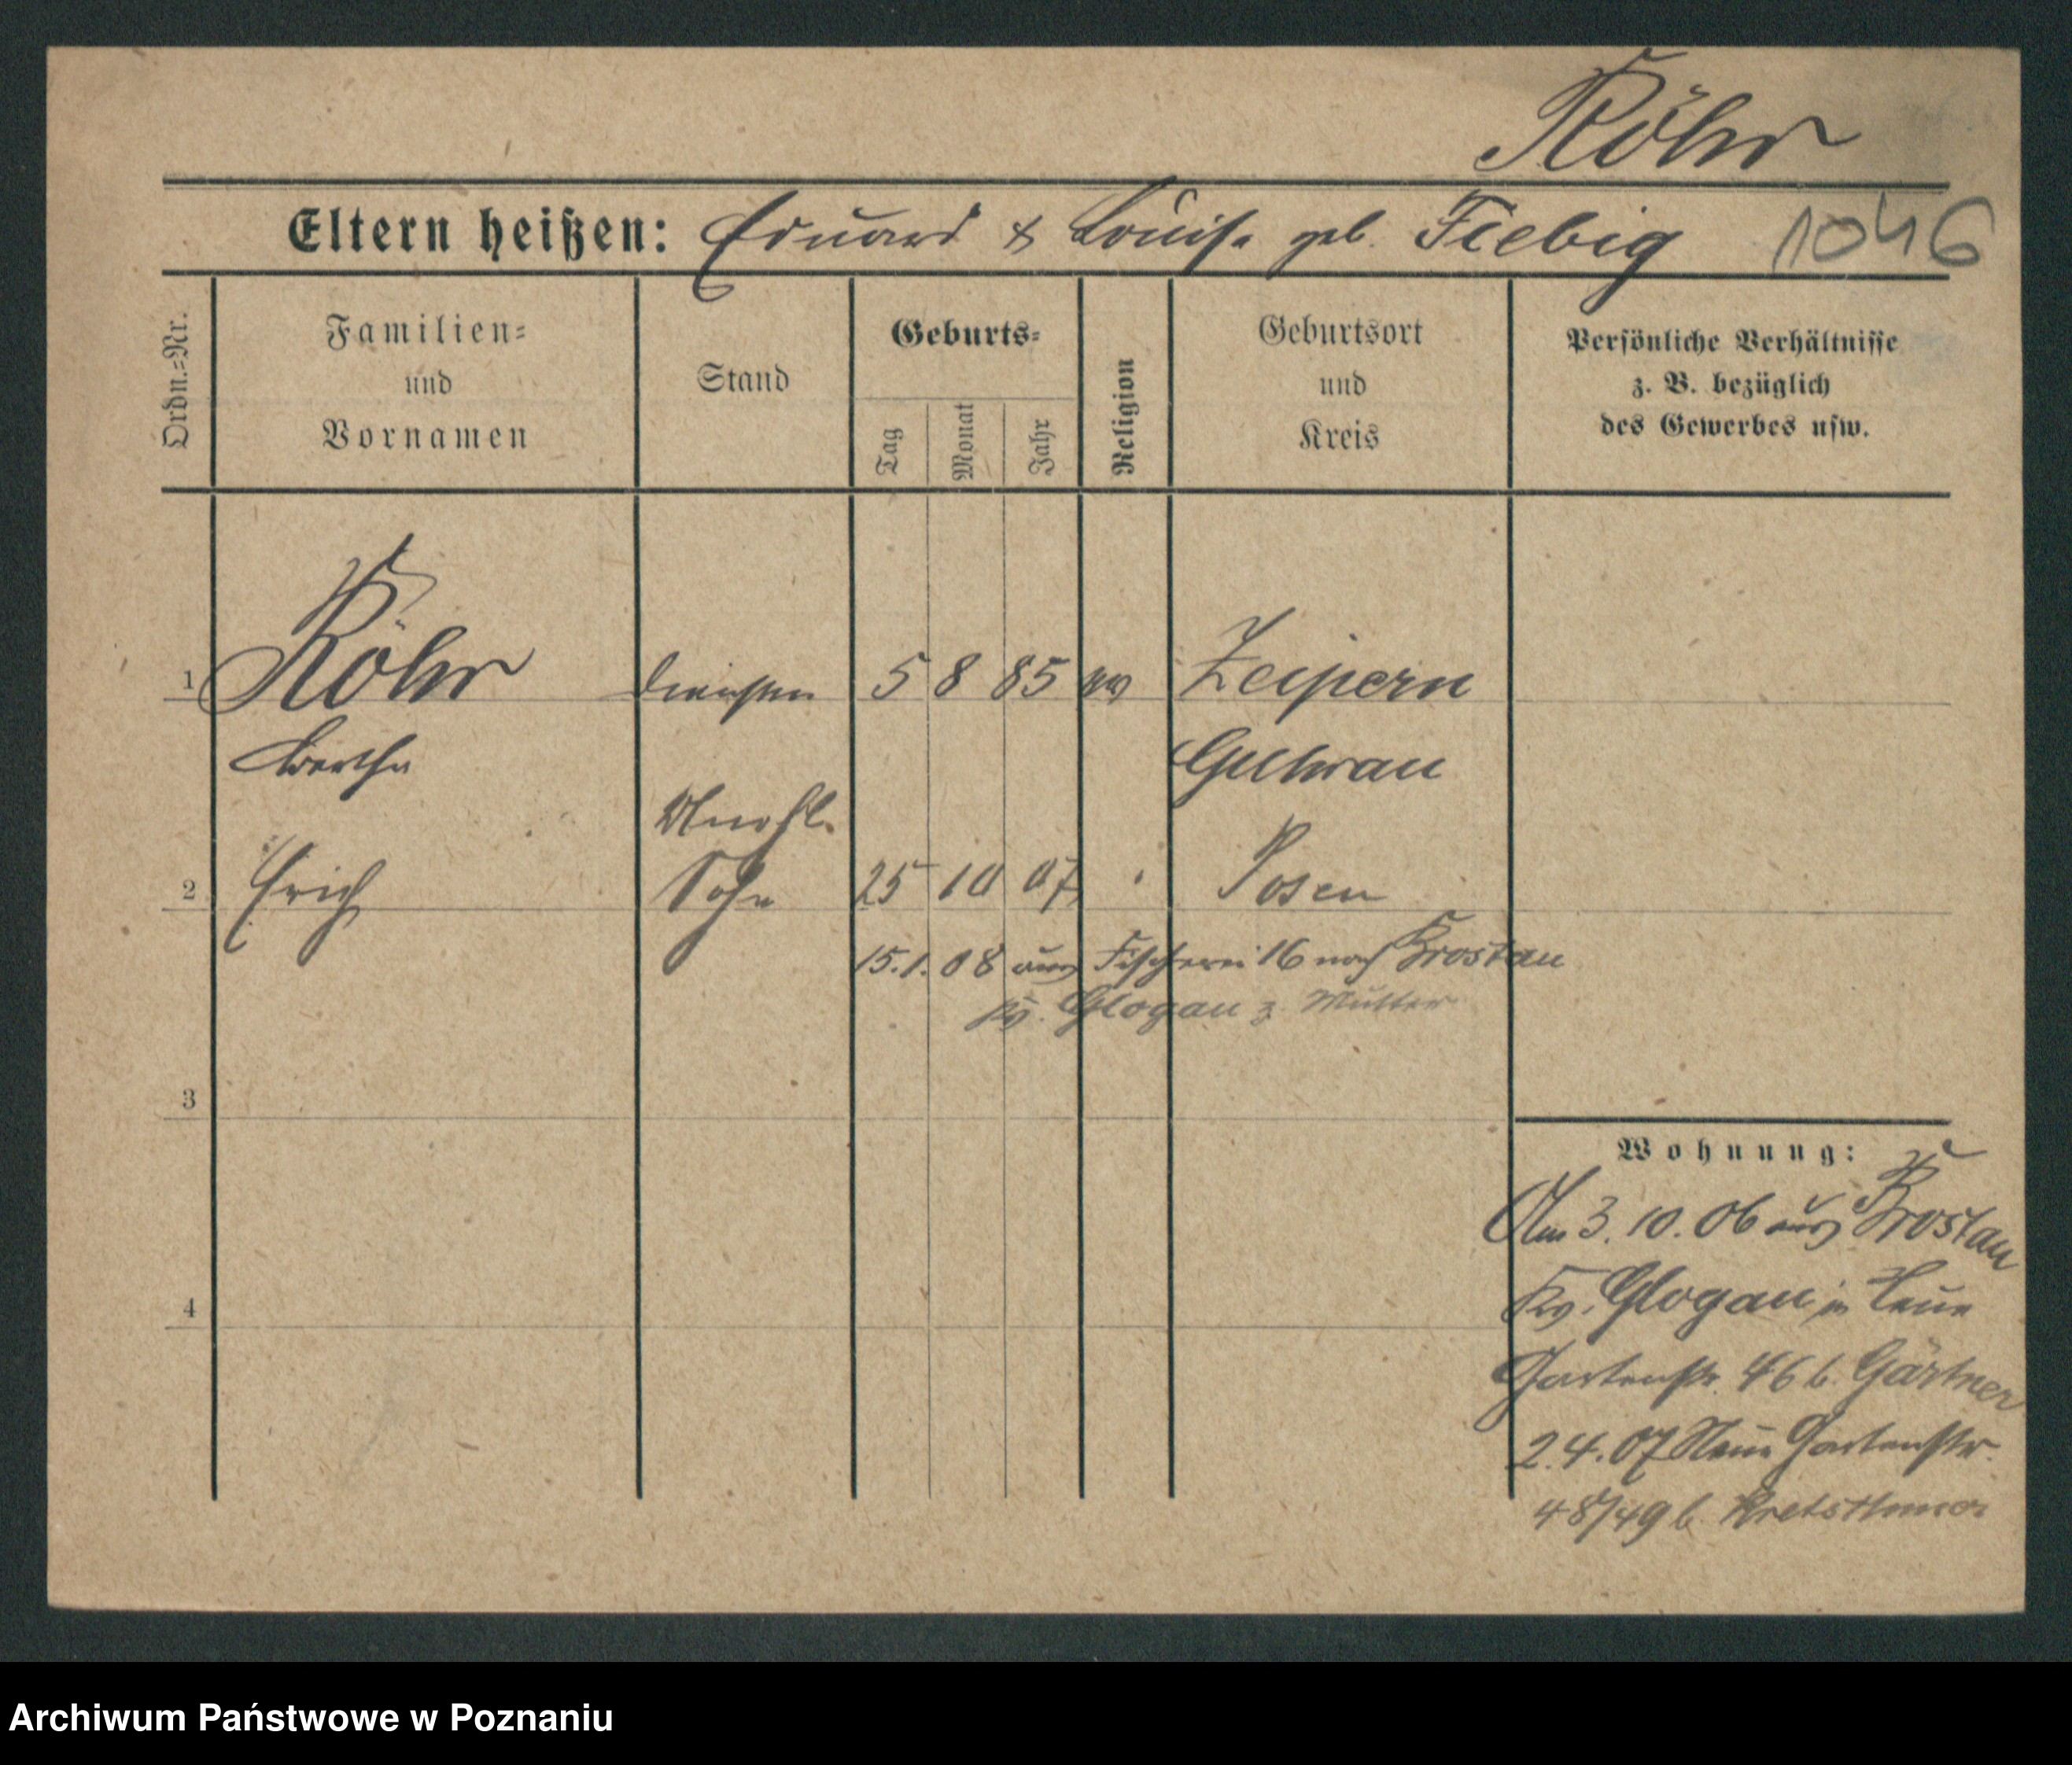 Röhr
Eltern heißen: Eduard & Louise geb. Fiebig 1046
Ordn.=Nr.
Familien=
und
Vornamen
Stand
Geburts=
Tag
Monat
Jahr
Religion
Geburtsort
und
Kreis
Persönliche Verhältnisse
z. B. bezüglich
des Gewerbes usw.
1 Röhr 5 8 85 ev Zeipern
Bertha Guhrau
Unehl.
2 Erich Sohn 25 10 07 " Posen
15.1.08 aus Fischerei 16 nach Brostau
Kr. Glogau z. Mutter
3
4
Wohnung:
Am 3.10.06 aus Brostau
Kr. Glogau in Neue
Gartenstr. 46 b. Gärtner
2.4.07 Neue Gartenstr.
48/49 b. Kretschmer
Archiwum Państwowe w Poznaniu